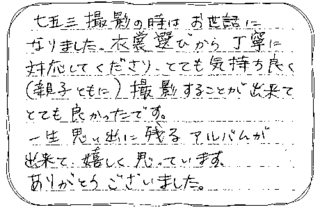 七五三撮影の時は お世話に
なりました。衣裳選びから丁寧に
対応してくださり、とても気持ち良く
(親子ともに)撮影することが出来て
とても良かったです。
一生思い出に残るアルバムが
出来て、嬉しく思っています。
ありがとうございました。